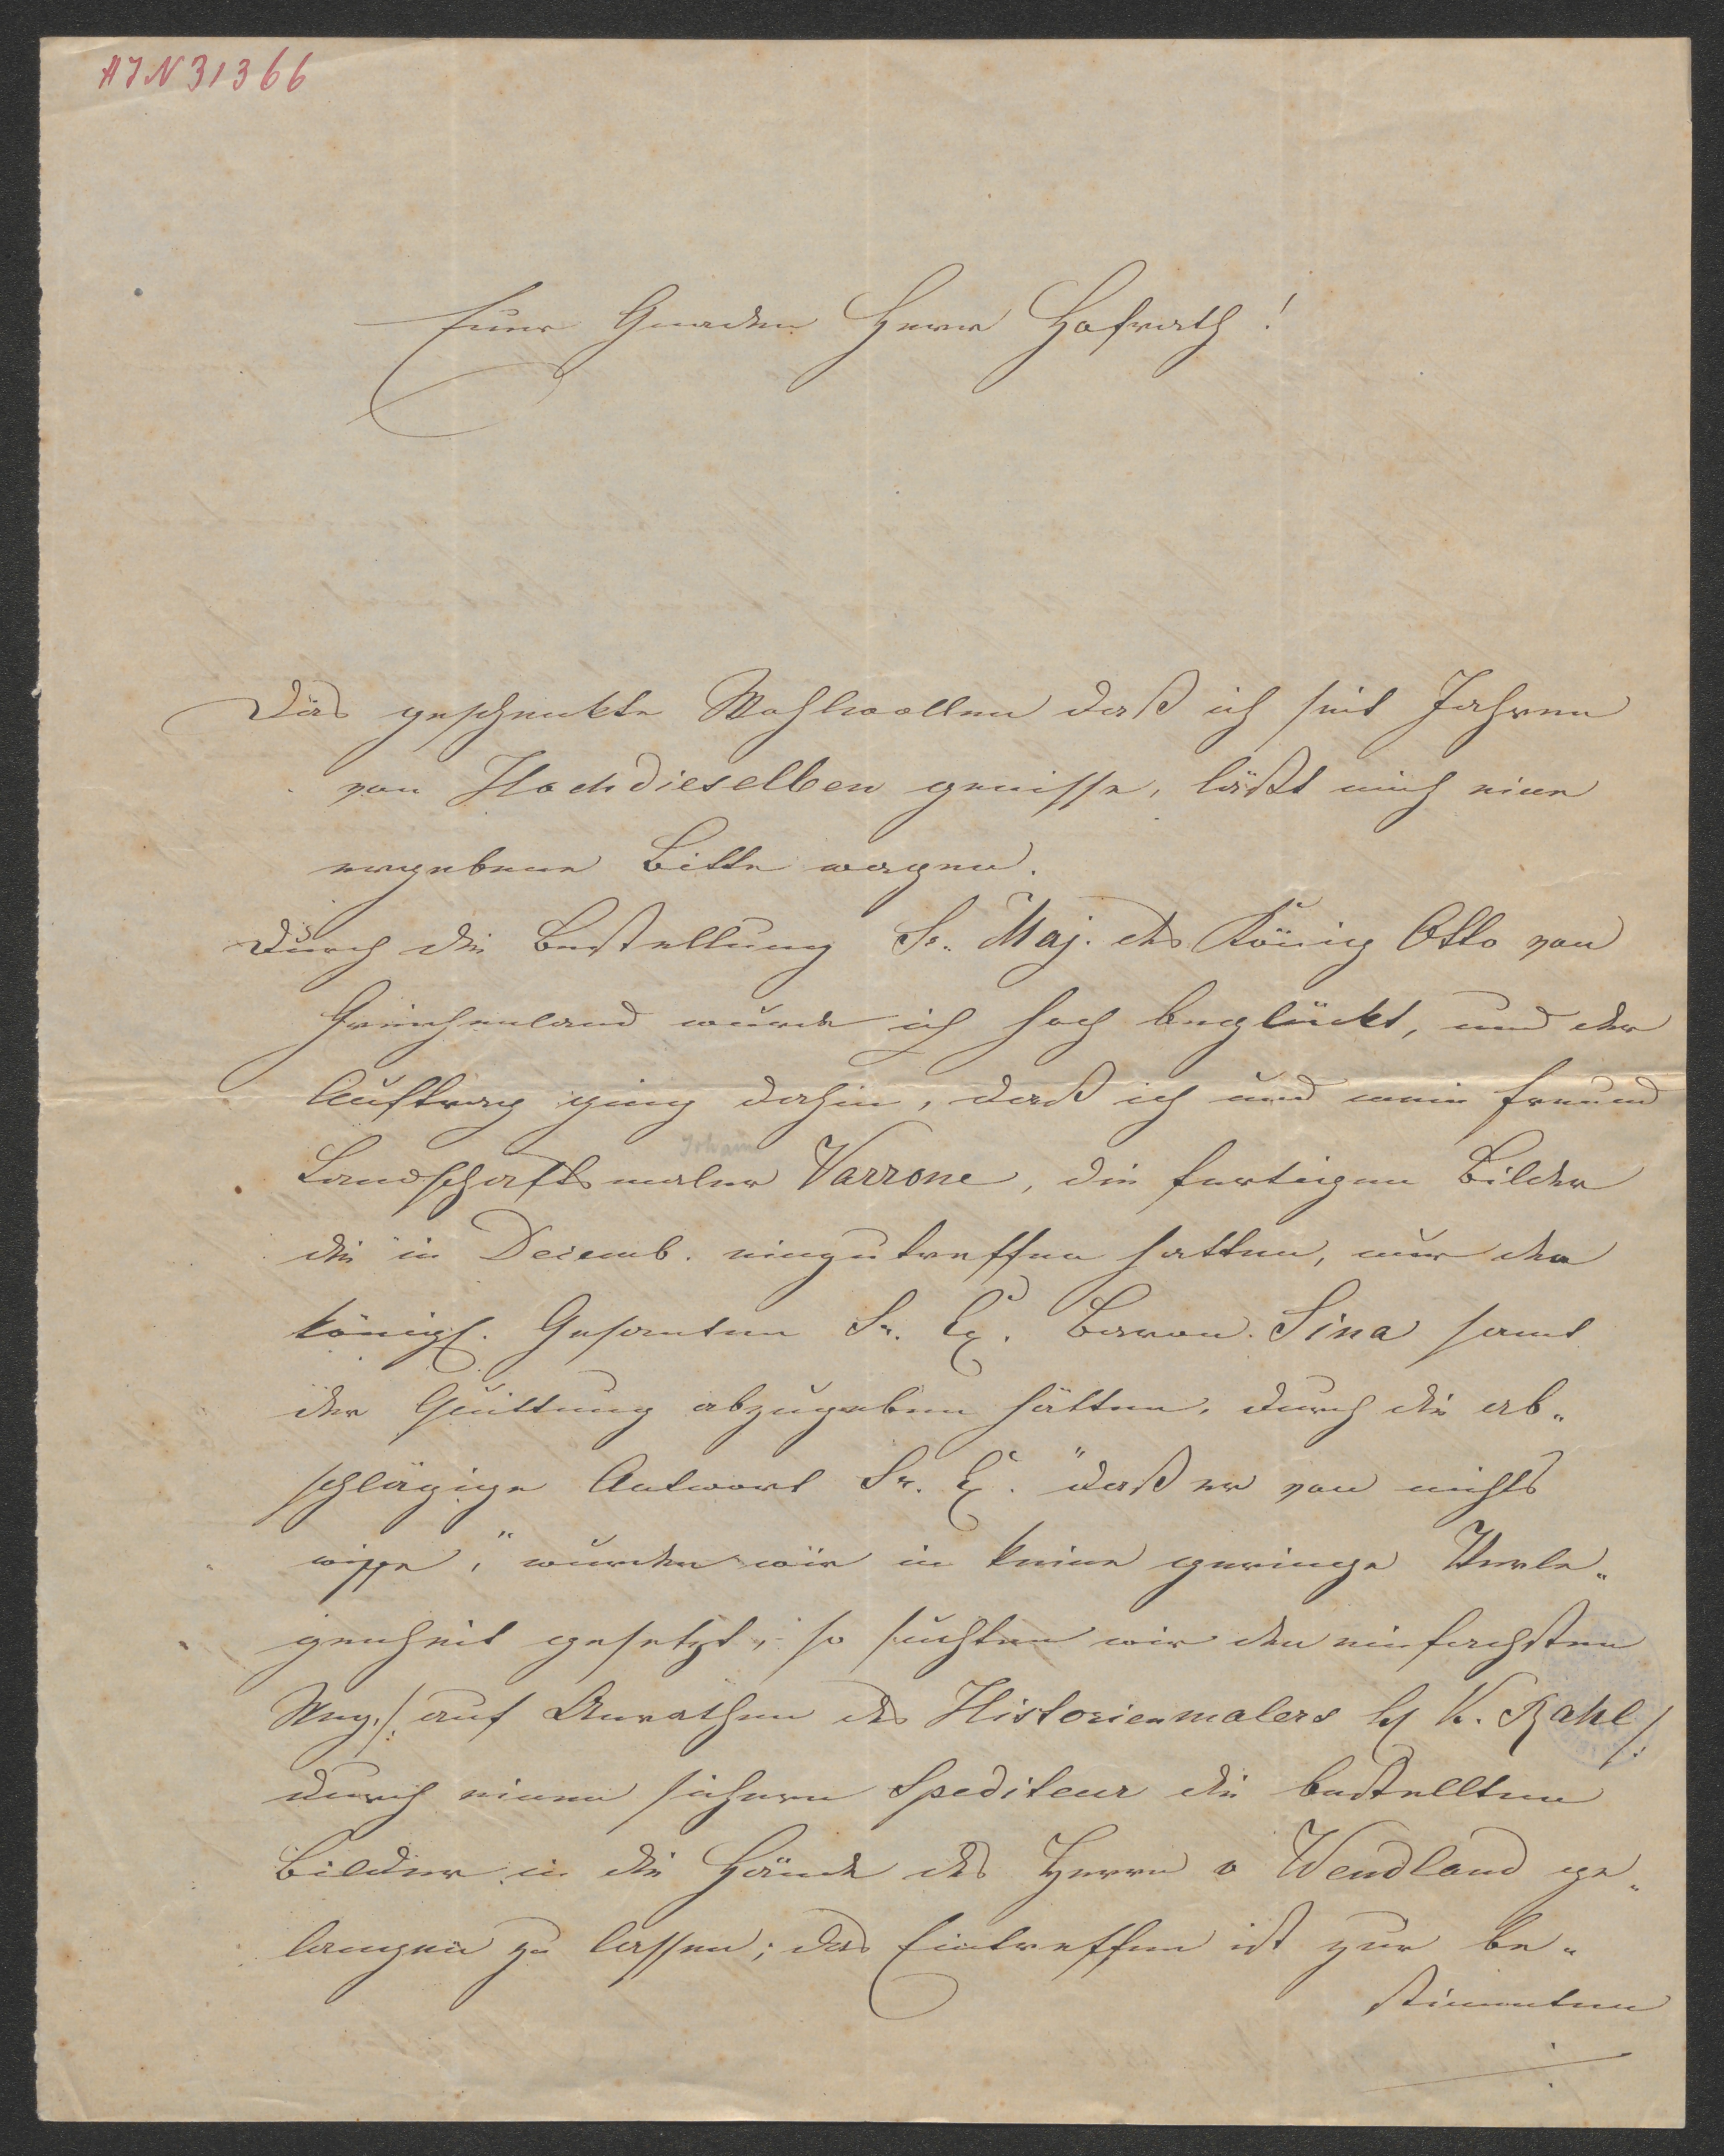 AJN 31366
Euer Gnaden Herr Hofrath!
Das geschenkte Wohlwollen daß ich seit Jahren
von Hochdieselben genisse, läßt mich eine
ergebene Bitte wagen.
Durch die Bestellung Sr. Maj. des König Otto von
Griechenland wurde ich hoch beglückt, und der
Auftrag ging dahin, daß ich und mein Freund
Johann
Landschaftsmaler Varrone, die fertigen Bilder
die in Decemb. einzutreffen hatten, nur den
königl. Gesandten Sr. Ex. Baron Sina samt
der Quittung abzugeben hätten, durch die ab„
schlägige Antwort Sr. Ex. "daß er von nichts
wisse," wurden wir in keine geringe Verle„
genheit gesetzt, so suchten wir den einfachsten
Weg, /: auf Anrathen des Historienmalers H K. Rahl /:
durch einen sichern Spediteur die bestellten
Bilder in die Hände des Herrn v Wendland ge„
langen zu lassen; das Eintreffen ist zur be„
stimmten